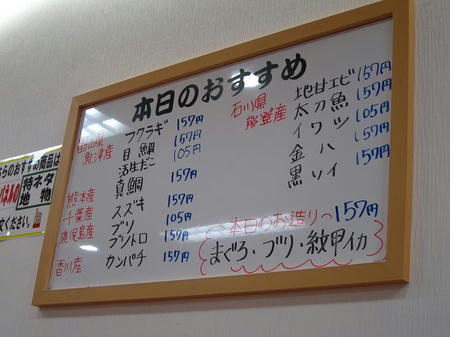 本日のおすすめ
富山県
魚津産
フクラギ 157円
目鯛 157円
活生だこ 105円
真鯛 157円
熊本産 スズキ 157円
千葉産 ブリ 105円
鹿児島産 ブリトロ 157円
香川産 カンパチ 157円
石川県
能登産
地甘エビ 157円
太刀魚 157円
イワシ 105円
金ハツ 157円
黒ソイ 157円
～本日のお造り～157円
まぐろ・ブリ・紋甲イカ
ちらのおすすめ商品は
パネルの 特ネタ
地物
文ください。